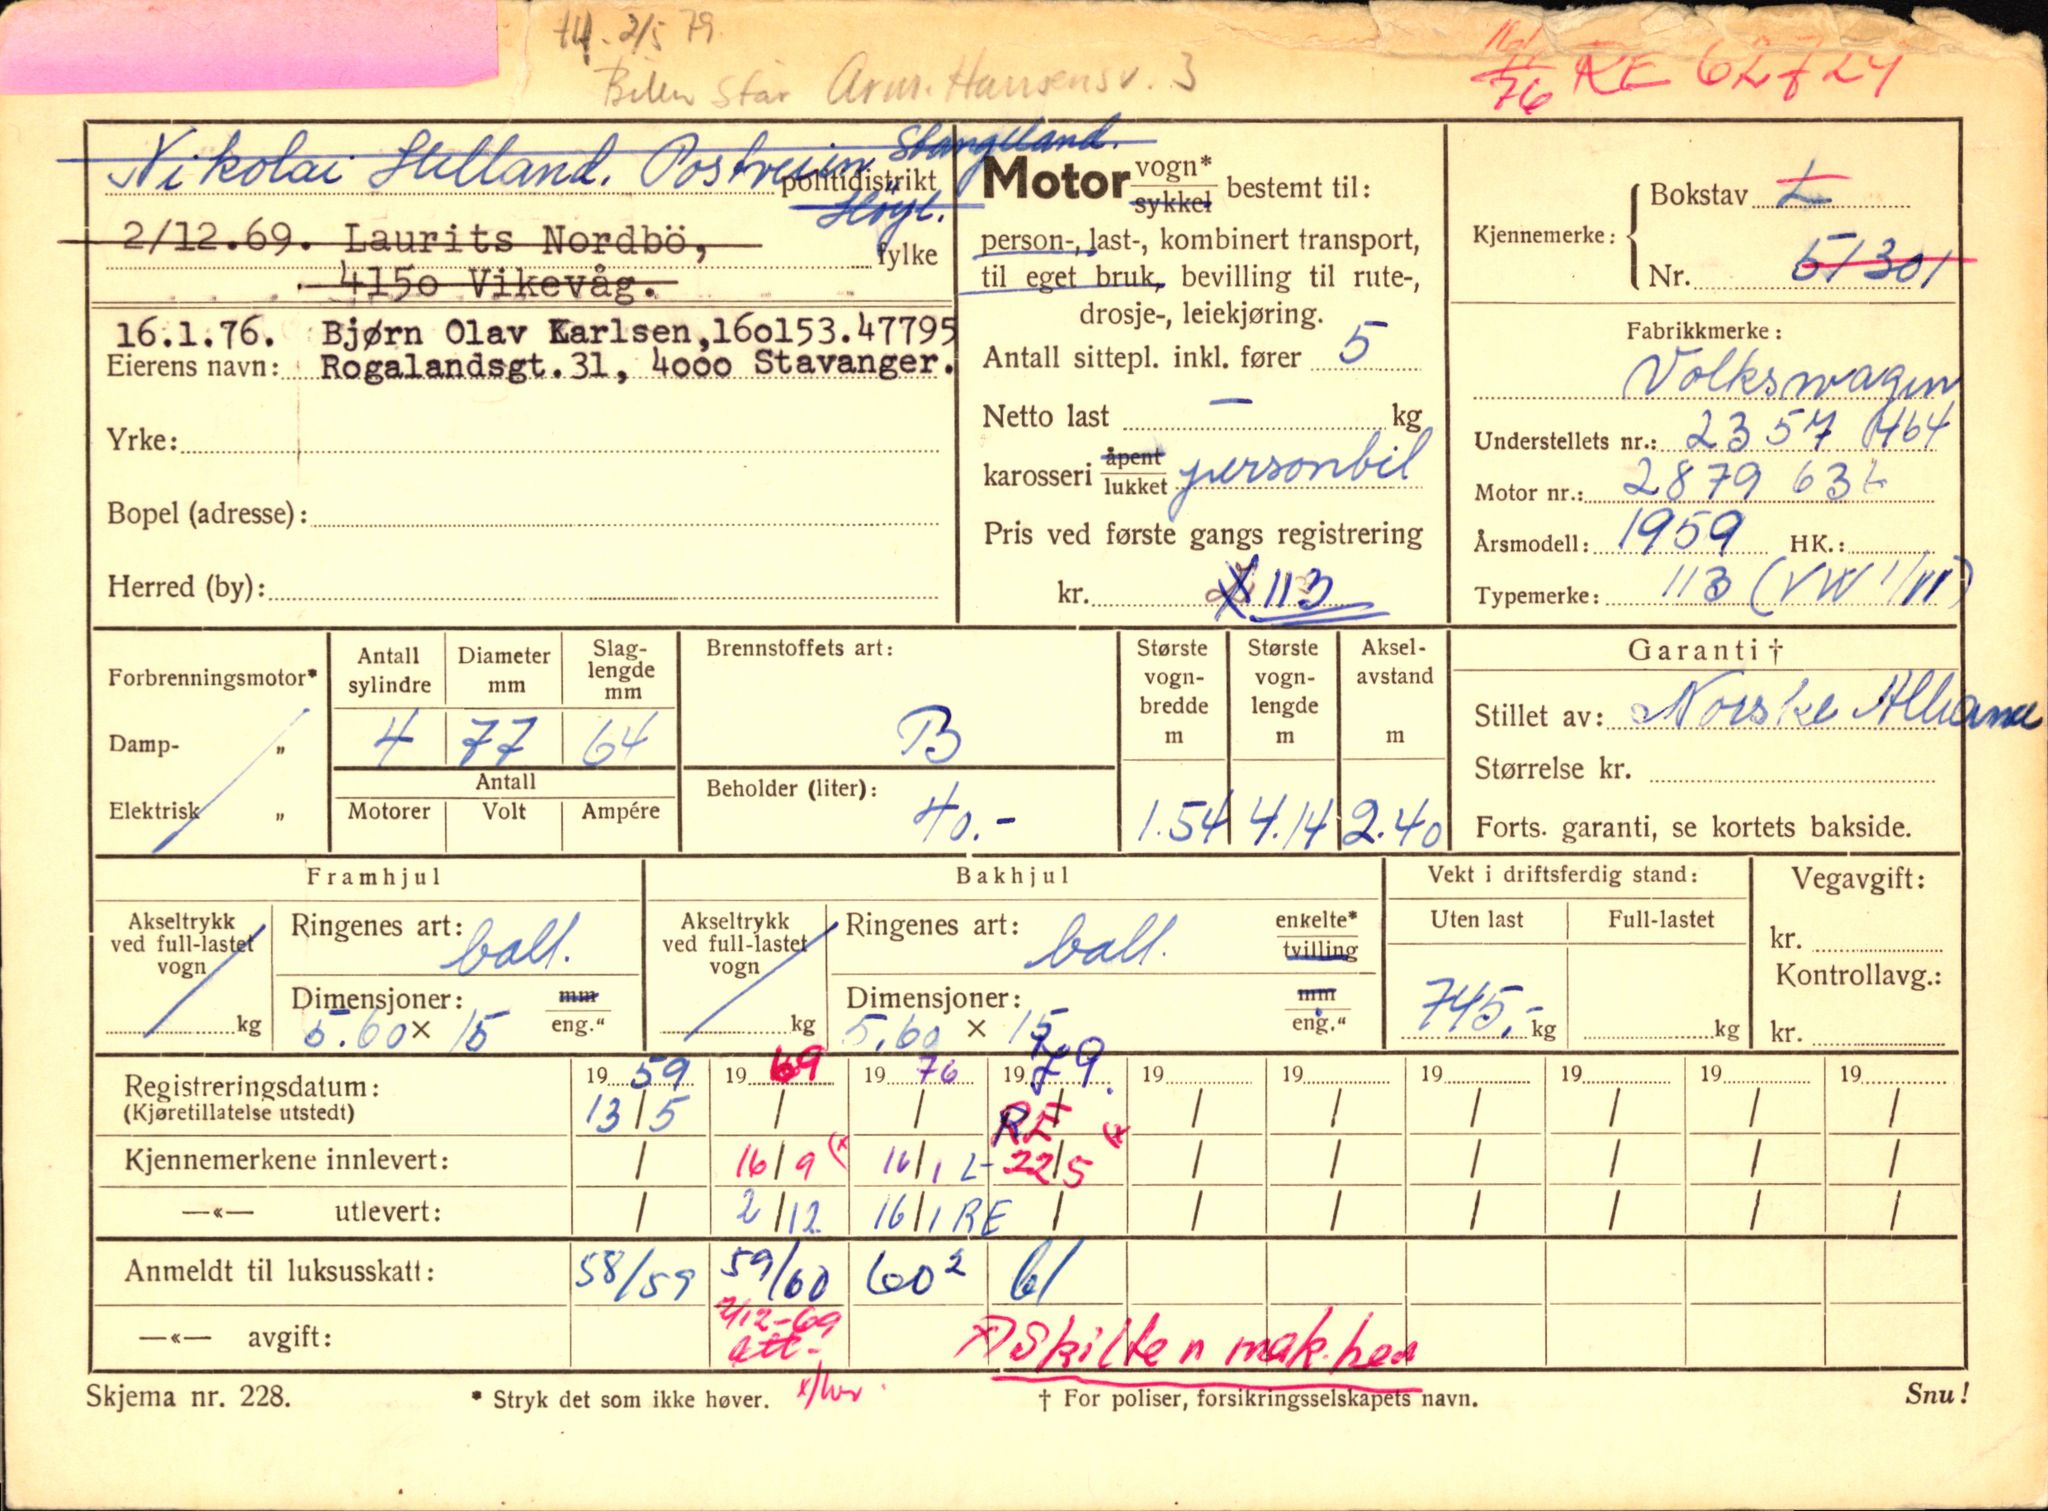 2/5 79.
Bilen står Arm. Hansensv. 3
76 RE 62724
Nikolai Helland. Postveien Stangeland.
politidistrikt
Høyl.
2/12.69. Laurits Nordbö,
fylke
4150 Vikevåg.
16.1.76. Bjørn Olav Karlsen,160153.47795
Eierens navn: Rogalandsgt.31, 4000 Stavanger.
Yrke:
Bopel (adresse):
Herred (by):
Motor vogn* sykkel bestemt til:
person-, last-, kombinert transport,
til eget bruk, bevilling til rute-,
drosje-, leiekjøring.
Antall sittepl. inkl. fører 5
Netto last — kg
karosseri åpent lukket personbil
Pris ved første gangs registrering
kr. X 113
Kjennemerke: Bokstav L
Nr. 51301
Fabrikkmerke:
Volkswagen
Understellets nr.: 2357 464
Motor nr.: 2879 632
Årsmodell: 1959 HK.:
Typemerke: 113 (VW 1/11)
Forbrenningsmotor*
Damp- „
Elektrisk „
Antall sylindre Diameter mm Slag- lengde mm
4 77 64
Antall
Motorer Volt Ampére
Brennstoffets art:
B
Beholder (liter):
40.-
Største vogn- bredde m
1.54
Største vogn- lengde m
4.14
Aksel- avstand m
2.40
Garanti †
Stillet av: Norske Alliance
Størrelse kr.
Forts. garanti, se kortets bakside.
Framhjul
Akseltrykk ved full-lastet vogn
kg
Ringenes art: ball.
Dimensjoner: mm eng."
5.60 × 15
Bakhjul
Akseltrykk ved full-lastet vogn
kg
Ringenes art: ball. enkelte* tvilling
Dimensjoner: mm eng."
5.60 × 15
Vekt i driftsferdig stand:
Uten last Full-lastet
745,- kg kg
Vegavgift:
kr.
Kontrollavg.:
kr.
Registreringsdatum: 19 59 19 69 19 76 19 79. 19 19 19 19 19 19
(Kjøretillatelse utstedt) 13/5 / / / / / / / / /
RE (x
Kjennemerkene innlevert: / 16/9 (x 16/1 L 22/5 / / / / / /
—«— utlevert: / 2/12 16/1 RE / / / / / / /
Anmeldt til luksusskatt: 58/59 59/60 60² 61
—«— avgift: 2/12-69
att.
x) Skilten mak.
Skjema nr. 228.
* Stryk det som ikke høver.
† For poliser, forsikringsselskapets navn.
Snu!